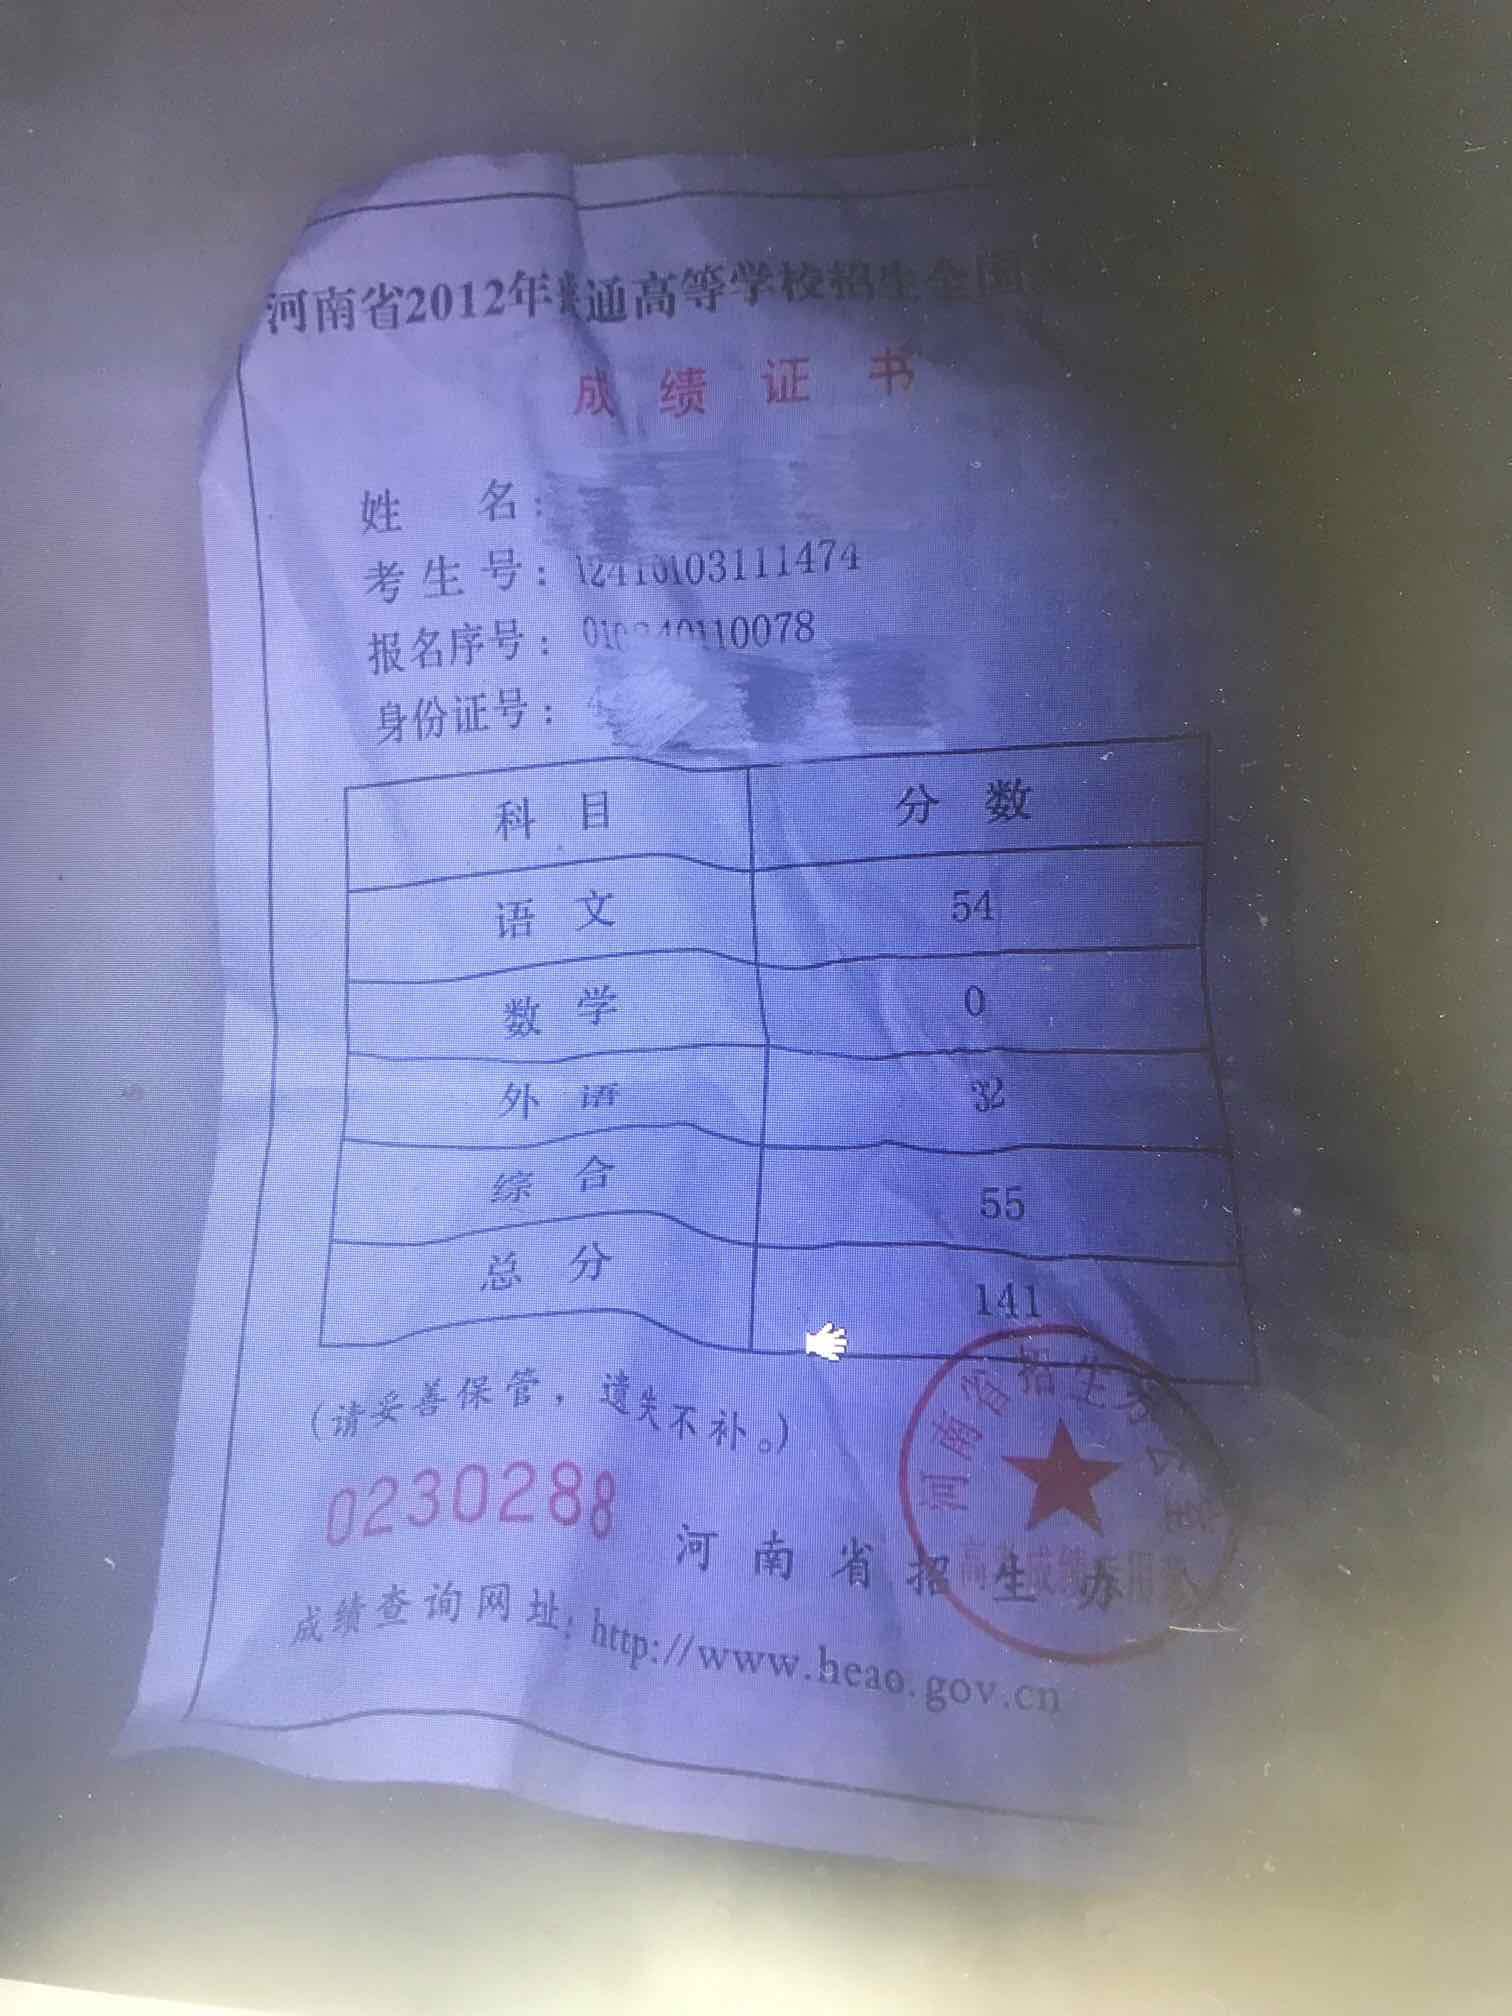 河南省2012年普通高等学校招生全国
成绩证书
姓 名：
考生号：12410103111474
报名序号：
身份证号：
科目 分数
语文 54
数学 0
外语 32
综合 55
总分 141
（请妥善保管，遗失不补。）
0230288
河南省招生办
成绩查询网址：http://www.heao.gov.cn
河南省招生